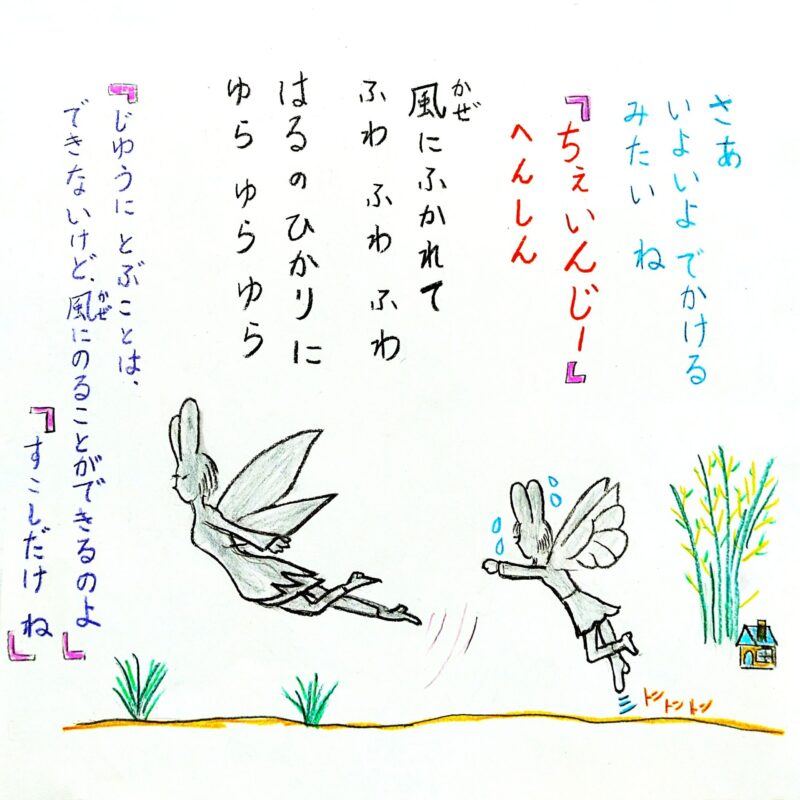 さあ
いよいよ でかける
みたい ね
『ちぇいんじー』
へんしん
風にふかれて
かぜ
ふわ ふわ ふわ
はるのひかりに
ゆら ゆら ゆら
『じゆうに とぶことは、
できないけど、風にのることができるのよ』
かぜ
『すこしだけ ね』
トントントン